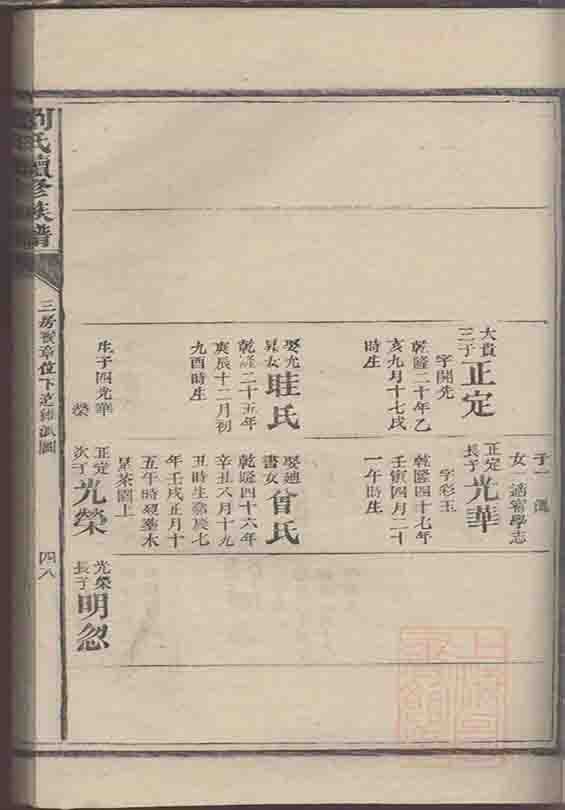 劉氏續修族譜
三房賓章位下逆鍾派圖
四八
大貴
三子
正定
字開光
乾隆二十年乙
亥九月十七戌
時生
娶允
昇女
眭氏
乾隆二十五年
庚辰十二月初
九酉時生
生子四光華
榮
子一
女一適甯學志
正定
長子
光華
字彩玉
乾隆四十七年
壬寅四月二十
一午時生
娶廸
書女
曾氏
乾隆四十六年
辛丑六月十九
丑時生嘉慶七
年壬戌正月十
五午時歿葬木
杲茶園上
正定
次子
光榮
光榮
長子
明忽